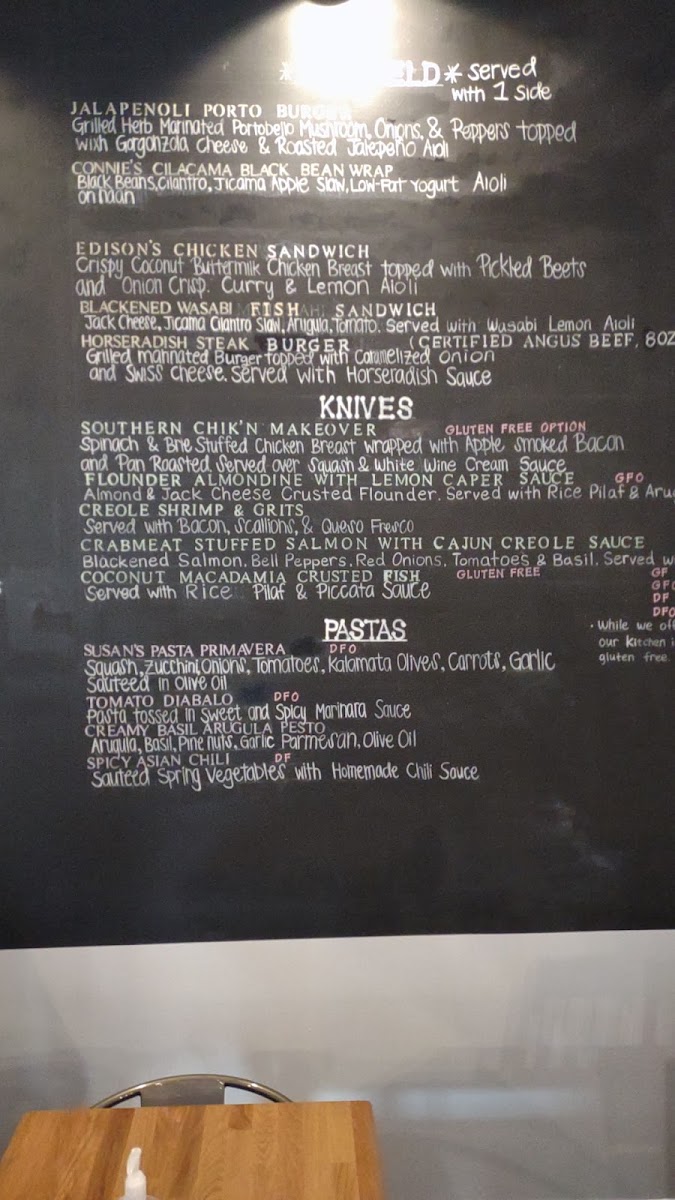 * served
with 1 side
JALAPENOLI PORTO
Grilled Herb Marinated Portobello Mushroom, Onions, & Peppers topped
with Gorgonzola Cheese & Roasted Jalepeño Aioli
CONNIE'S CILACAMA BLACK BEAN WRAP
Black Beans, Cilantro, Jicama Apple Slaw, Low-Fat Yogurt Aioli
on naan
EDISON'S CHICKEN SANDWICH
Crispy Coconut Buttermilk Chicken Breast topped with Pickled Beets
and Onion Crisp. Curry & Lemon Aioli
BLACKENED WASABI FISH SANDWICH
Jack Cheese, Jicama Cilantro Slaw, Arugula, Tomato. Served with Wasabi Lemon Aioli
HORSERADISH STEAK BURGER (CERTIFIED ANGUS BEEF, 8OZ
Grilled marinated Burger topped with Caramelized onion
and Swiss cheese. Served with Horseradish Sauce
KNIVES
SOUTHERN CHIK'N MAKEOVER GLUTEN FREE OPTION
Spinach & Brie Stuffed Chicken Breast wrapped with Apple Smoked Bacon
and Pan Roasted. Served over Squash & White Wine Cream Sauce
FLOUNDER ALMONDINE WITH LEMON CAPER SAUCE GFO
Almond & Jack Cheese Crusted Flounder. Served with Rice Pilaf & Aru
CREOLE SHRIMP & GRITS
Served with Bacon, Scallions, & Queso Fresco
CRABMEAT STUFFED SALMON WITH CAJUN CREOLE SAUCE
Blackened Salmon, Bell Peppers, Red Onions, Tomatoes & Basil. Served w
COCONUT MACADAMIA CRUSTED FISH GLUTEN FREE
Served with Rice Pilaf & Piccata Sauce
GF
GFO
DF
DFO
• While we off
our kitchen i
gluten free.
PASTAS
SUSAN'S PASTA PRIMAVERA DFO
Squash, Zucchini, Onions, Tomatoes, Kalamata Olives, Carrots, Garlic
Sauteed in Olive Oil
TOMATO DIABALO DFO
Pasta tossed in Sweet and Spicy Marinara Sauce
CREAMY BASIL ARUGULA PESTO
Arugula, Basil, Pine nuts, Garlic Parmesan, Olive Oil
SPICY ASIAN CHILI DF
Sauteed Spring Vegetables with Homemade Chili Sauce